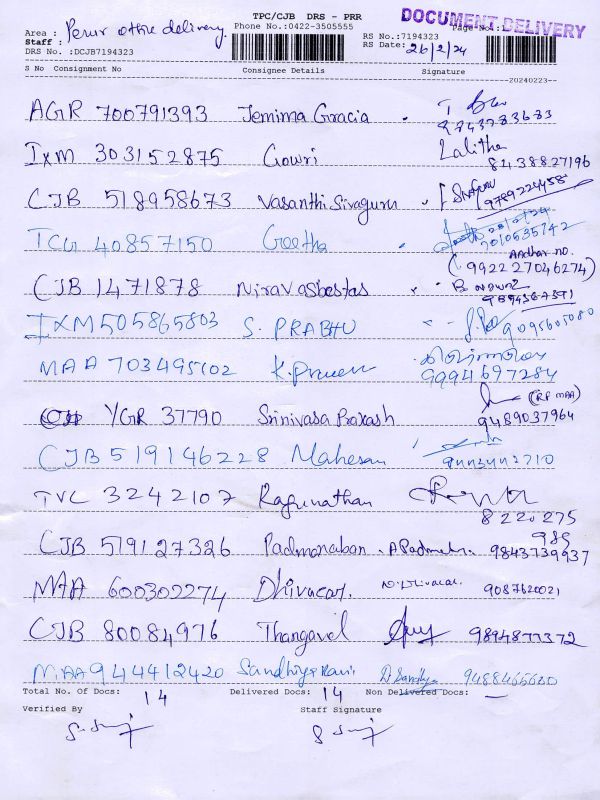 TPC/CJB DRS - PRR
DOCUMENT DELIVERY
Area : Perur office delivery
Phone No.:0422-3505555
Page No.:1
Staff :
RS No.:7194323
DRS No. :DCJB7194323
RS Date: 26/2/24
S No Consignment No Consignee Details Signature
20240223--
AGR 700791393 Jemima Gracia
9743783683
IXM 303152875 Gowri Lalitha
8438827196
CJB 518958673 Vasanthi Sivaguru
9789224458
TCG 40857150 Geetha
7010535742
Aadhar no.
(992227046274)
CJB 1471878 Nirav asbestos
9894567371
IXM 505865803 S. PRABHU 9095605080
MAA 703495602 K. Praveen
9994697284
YGR 37790 Srinivasa Prakash (RP MAA)
9489037964
CJB 519146228 Mahesan
9443442710
TVC 3242107 Ragunathan
8220275
985
CJB 519127326 Padmanaban 9843739937
MAA 600302274 Dhivacar. 9087620021
CJB 80084976 Thangavel 9894877372
MAA 944412420 Sandhiya Rani D Sandhya 9488465620
Total No. Of Docs: 14 Delivered Docs: 14 Non Delivered Docs: —
Verified By Staff Signature